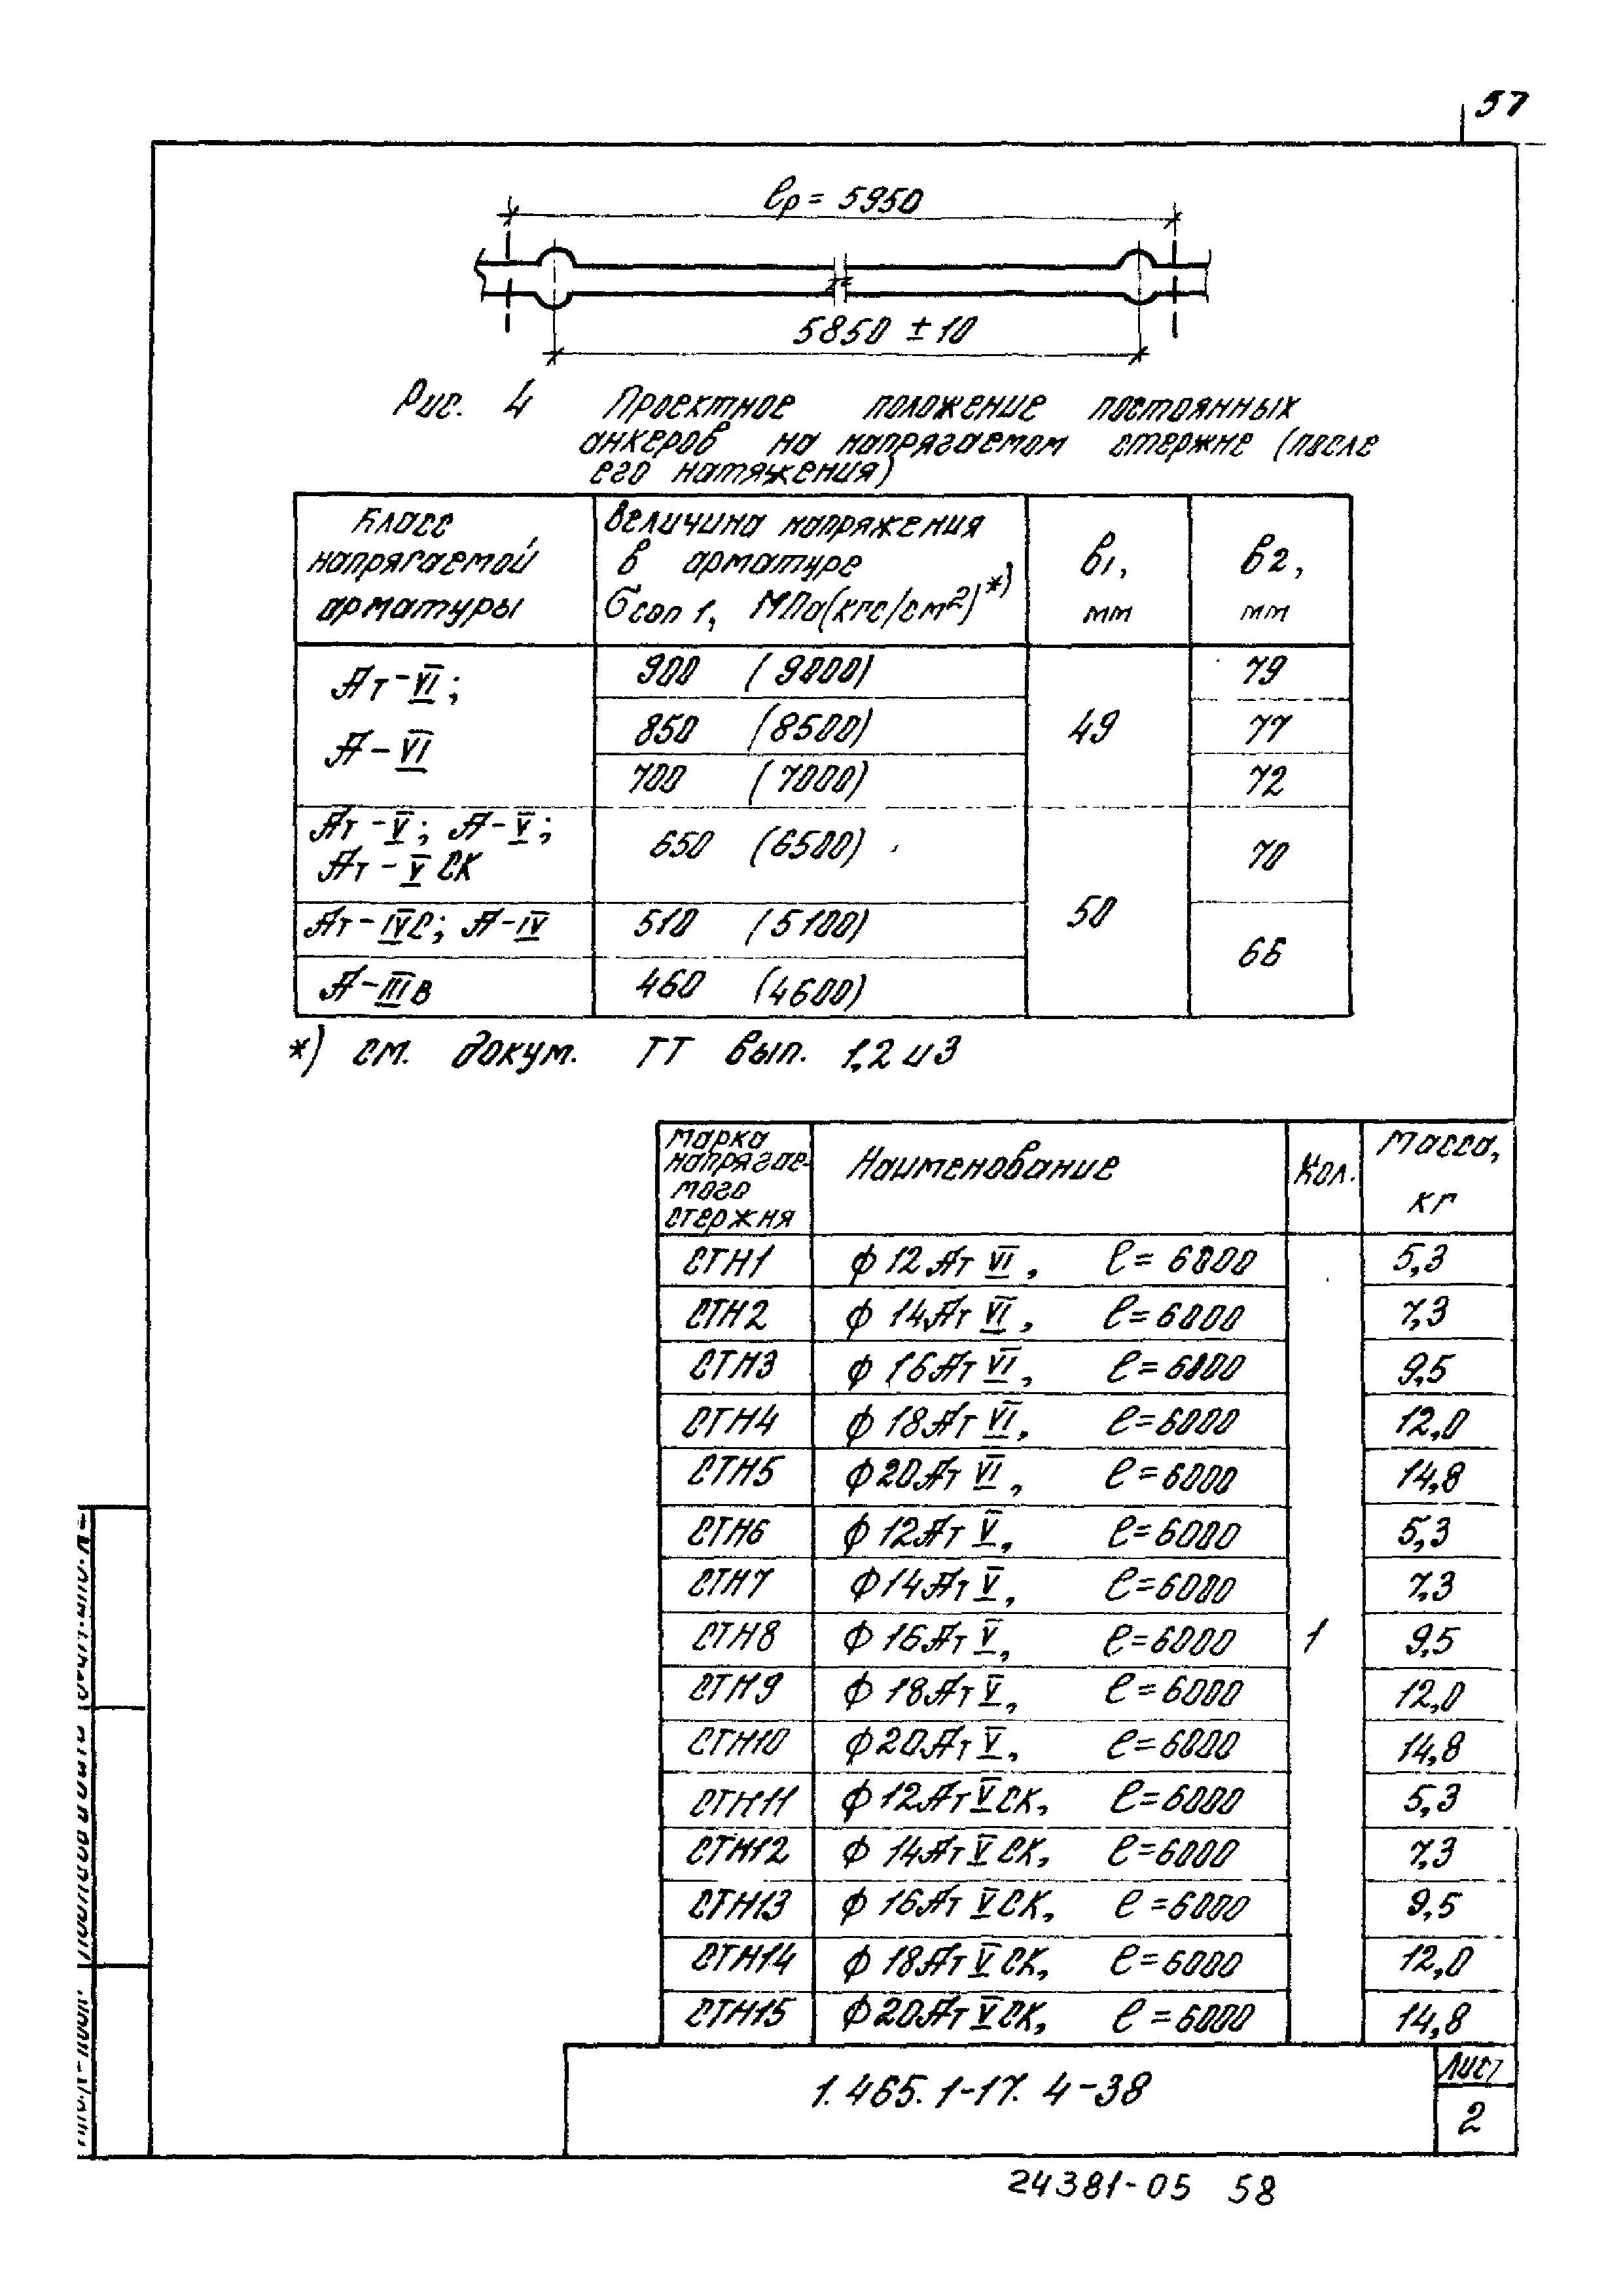 57
ℓр = 5950
5850 ± 10
Рис. 4 Проектное положение постоянных
анкеров на напрягаемом стержне (после
его натяжения)
Класс напрягаемой арматуры | Величина напряжения в арматуре σсоп 1, МПа (кгс/см²)*) | в1, мм | в2, мм
Ат-VI; А-VI | 900 (9000) | 49 | 79
850 (8500) | 77
700 (7000) | 72
Ат-V; А-V; Ат-V СК | 650 (6500) | 50 | 70
Ат-IVС; А-IV | 510 (5100) | 66
А-IIIв | 460 (4600)
*) см. докум. ТТ вып. 1,2 и 3
Марка напрягае-мого стержня | Наименование | Кол. | Масса, кг
СТН1 | ф 12 Ат VI, ℓ = 6000 | 5,3
СТН2 | ф 14 Ат VI, ℓ = 6000 | 7,3
СТН3 | ф 16 Ат VI, ℓ = 6000 | 9,5
СТН4 | ф 18 Ат VI, ℓ = 6000 | 12,0
СТН5 | ф 20 Ат VI, ℓ = 6000 | 14,8
СТН6 | ф 12 Ат V, ℓ = 6000 | 5,3
СТН7 | ф 14 Ат V, ℓ = 6000 | 7,3
СТН8 | ф 16 Ат V, ℓ = 6000 | 1 | 9,5
СТН9 | ф 18 Ат V, ℓ = 6000 | 12,0
СТН10 | ф 20 Ат V, ℓ = 6000 | 14,8
СТН11 | ф 12 Ат V СК, ℓ = 6000 | 5,3
СТН12 | ф 14 Ат V СК, ℓ = 6000 | 7,3
СТН13 | ф 16 Ат V СК, ℓ = 6000 | 9,5
СТН14 | ф 18 Ат V СК, ℓ = 6000 | 12,0
СТН15 | ф 20 Ат V СК, ℓ = 6000 | 14,8
1.465.1-17. 4-38
Лист
2
24381-05 58